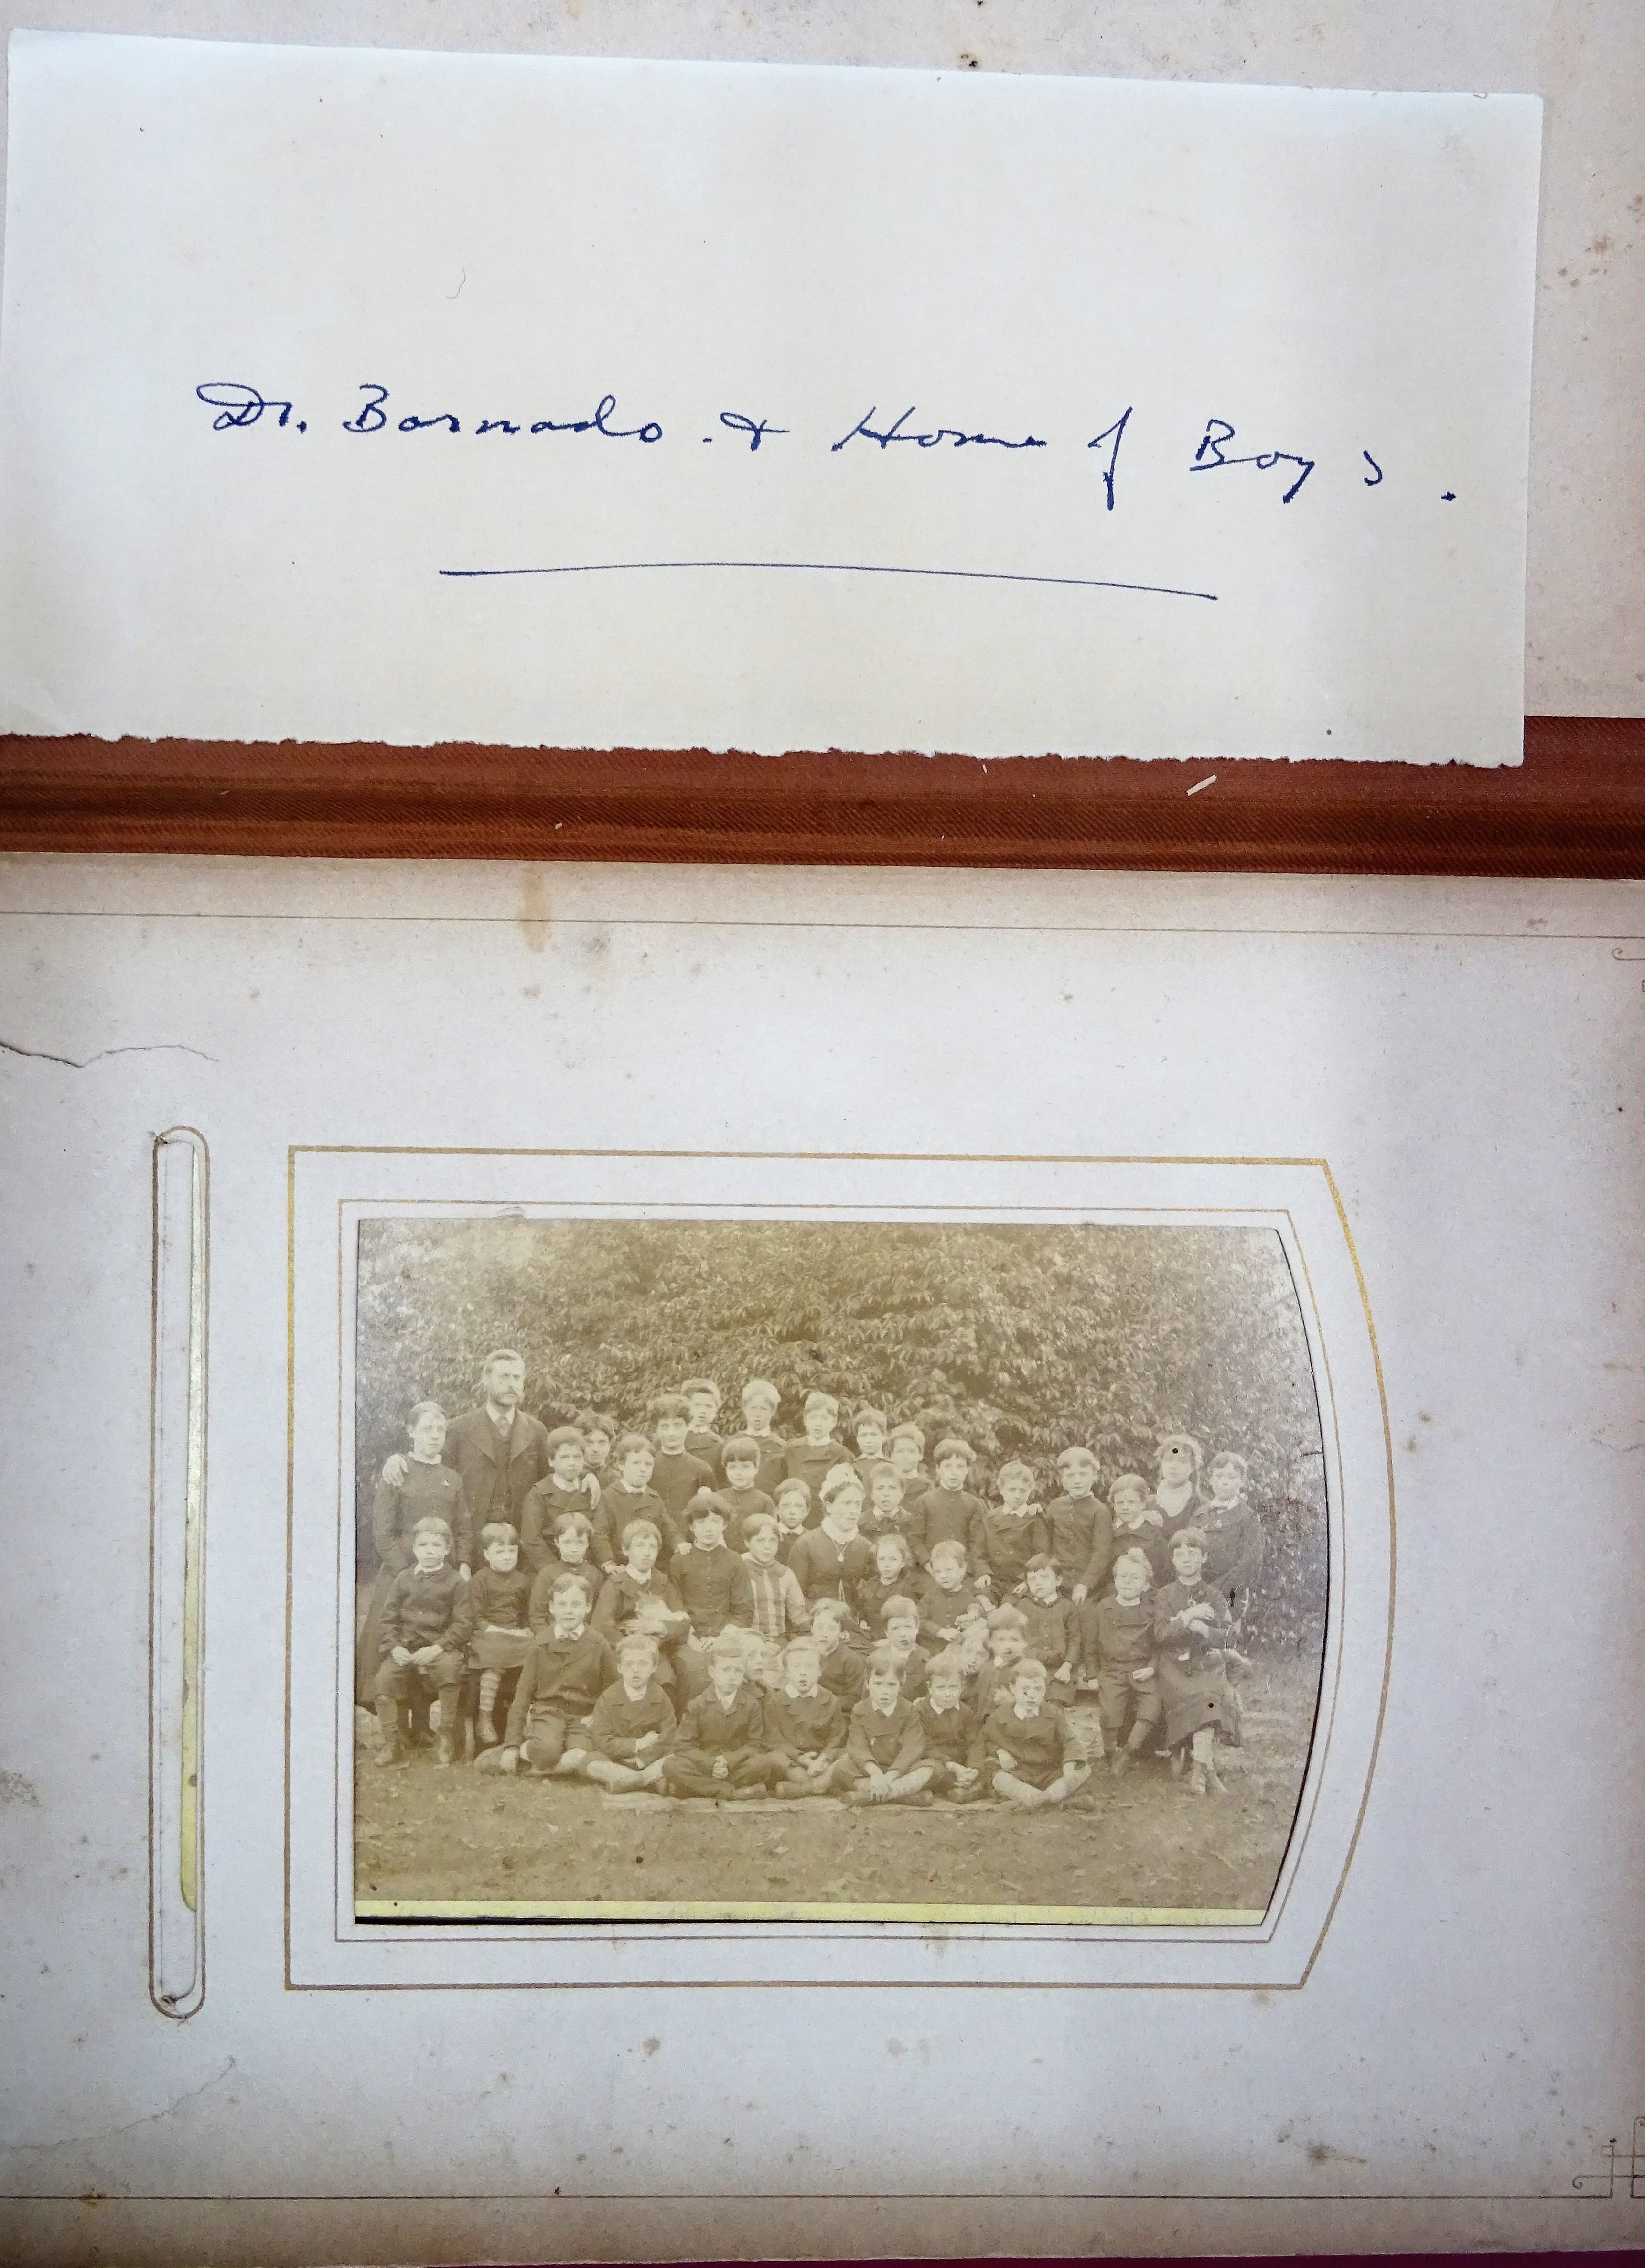 Dr. Barnado . & Home of Boys .